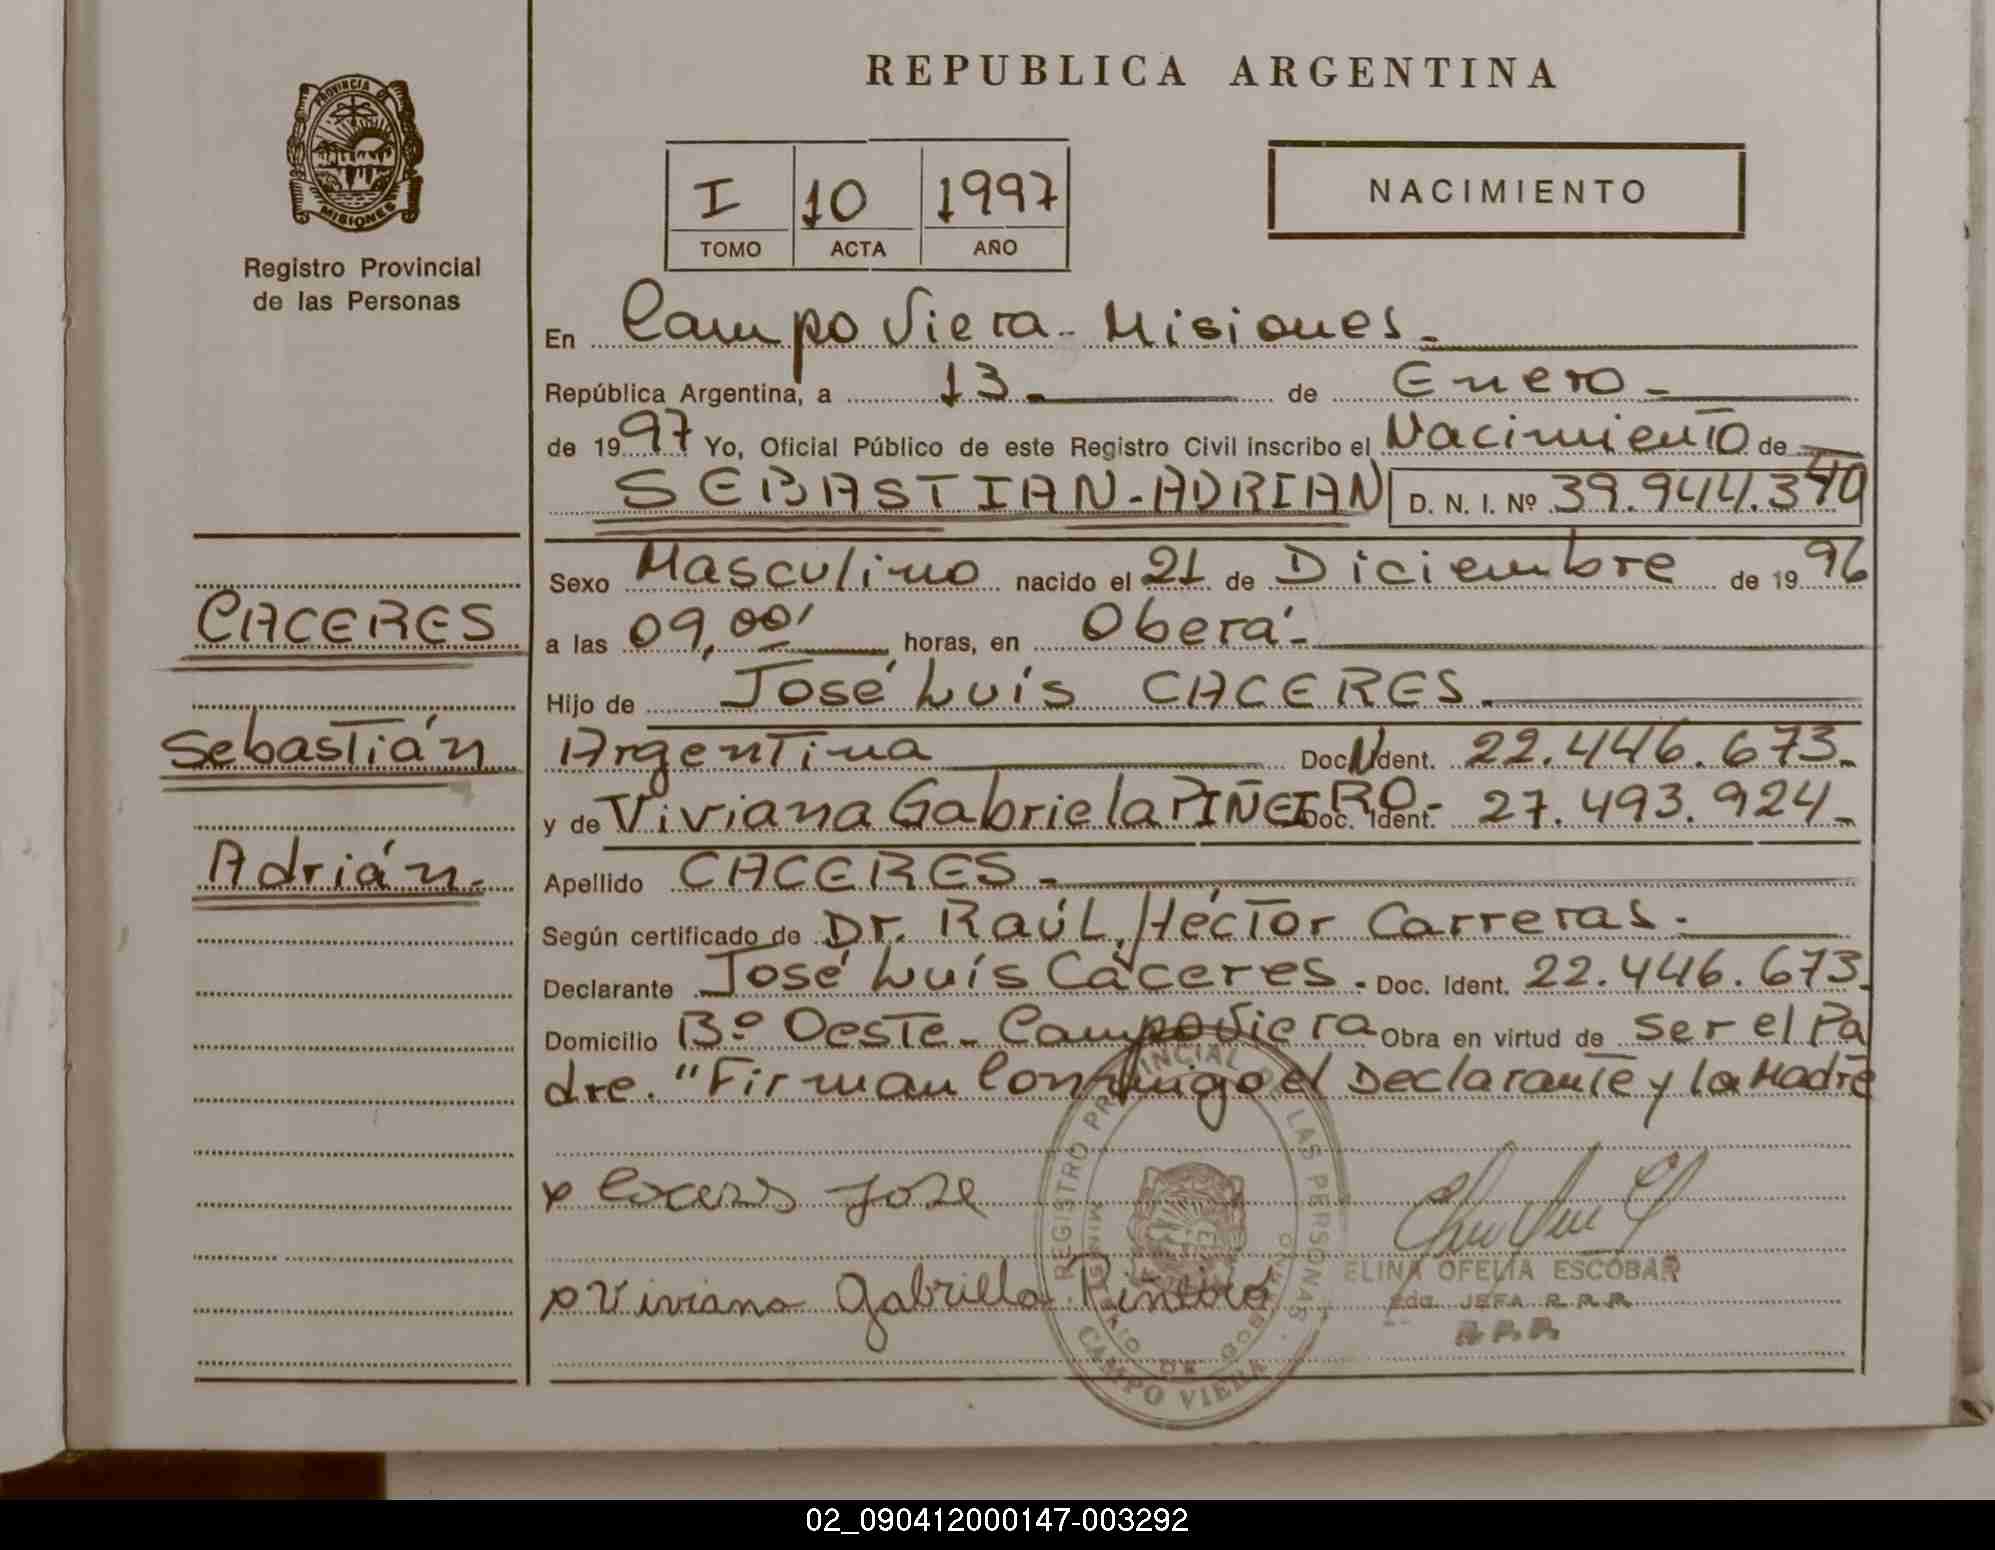 REPUBLICA ARGENTINA
PROVINCIA DE
MISIONES
Registro Provincial
de las Personas
I 10 1997
TOMO ACTA AÑO
NACIMIENTO
En Campo Viera - Misiones.
República Argentina, a 13. de Enero.
de 1997 Yo, Oficial Público de este Registro Civil inscribo el Nacimiento de
SEBASTIAN-ADRIAN D. N. I. Nº 39.944.340
Sexo Masculino nacido el 21 de Diciembre de 1996
a las 09,00' horas, en Oberá.
Hijo de José Luís CACERES.
Argentina Doc. Ident. 22.446.673.
y de Viviana Gabriela PIÑEIRO.- Doc. Ident. 27.493.924.
Apellido CACERES.
Según certificado de Dr. Raúl, Héctor Carreras.
Declarante José Luís Cáceres. Doc. Ident. 22.446.673.
Domicilio Bº Oeste - Campo Viera Obra en virtud de ser el Pa
dre. "Firman Conmigo el Declarante y la Madre
CACERES
Sebastián
Adrián.
x Caceres Jose
x Viviana Gabriella Piñeiro
REGISTRO PROVINCIAL DE LAS PERSONAS
MINISTERIO DE GOBIERNO
CAMPO VIERA
ELINA OFELIA ESCOBAR
JEFA R.P.P.
R.P.P.
02_090412000147-003292